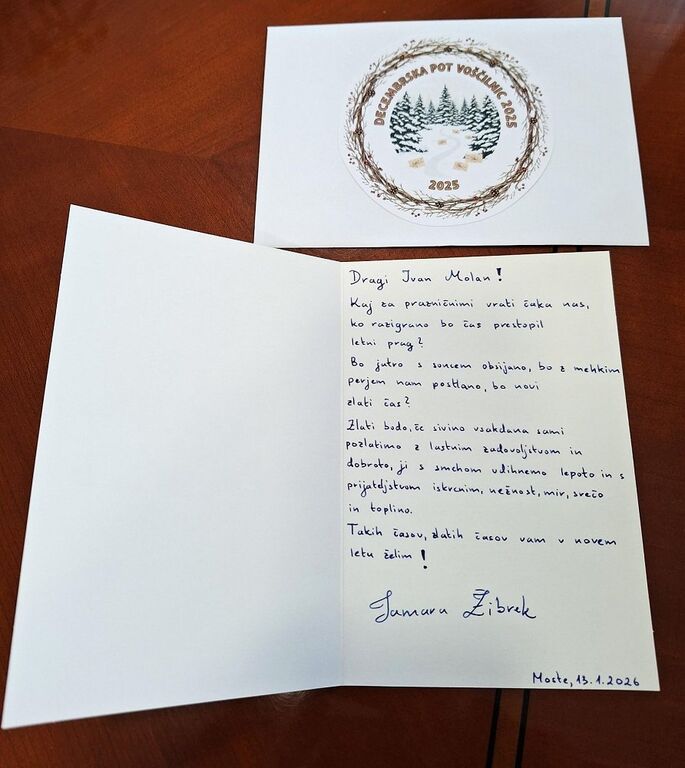 DECEMBRSKA POT VOŠČILNIC 2025
2025
Dragi Ivan Molan!
Kaj za prazničnimi vrati čaka nas,
ko razigrano bo čas prestopil
letni prag?
Bo jutro s soncem obsijano, bo z mehkim
perjem nam postlano, bo novi
zlati čas?
Zlati bodo, če sivino vsakdana sami
pozlatimo z lastnim zadovoljstvom in
dobroto, ji s smehom vdihnemo lepoto in s
prijateljstvom iskrenim, nežnost, mir, srečo
in toplino.
Takih časov, zlatih časov vam v novem
letu želim!
Tamara Žibrek
Moste, 13.1.2026